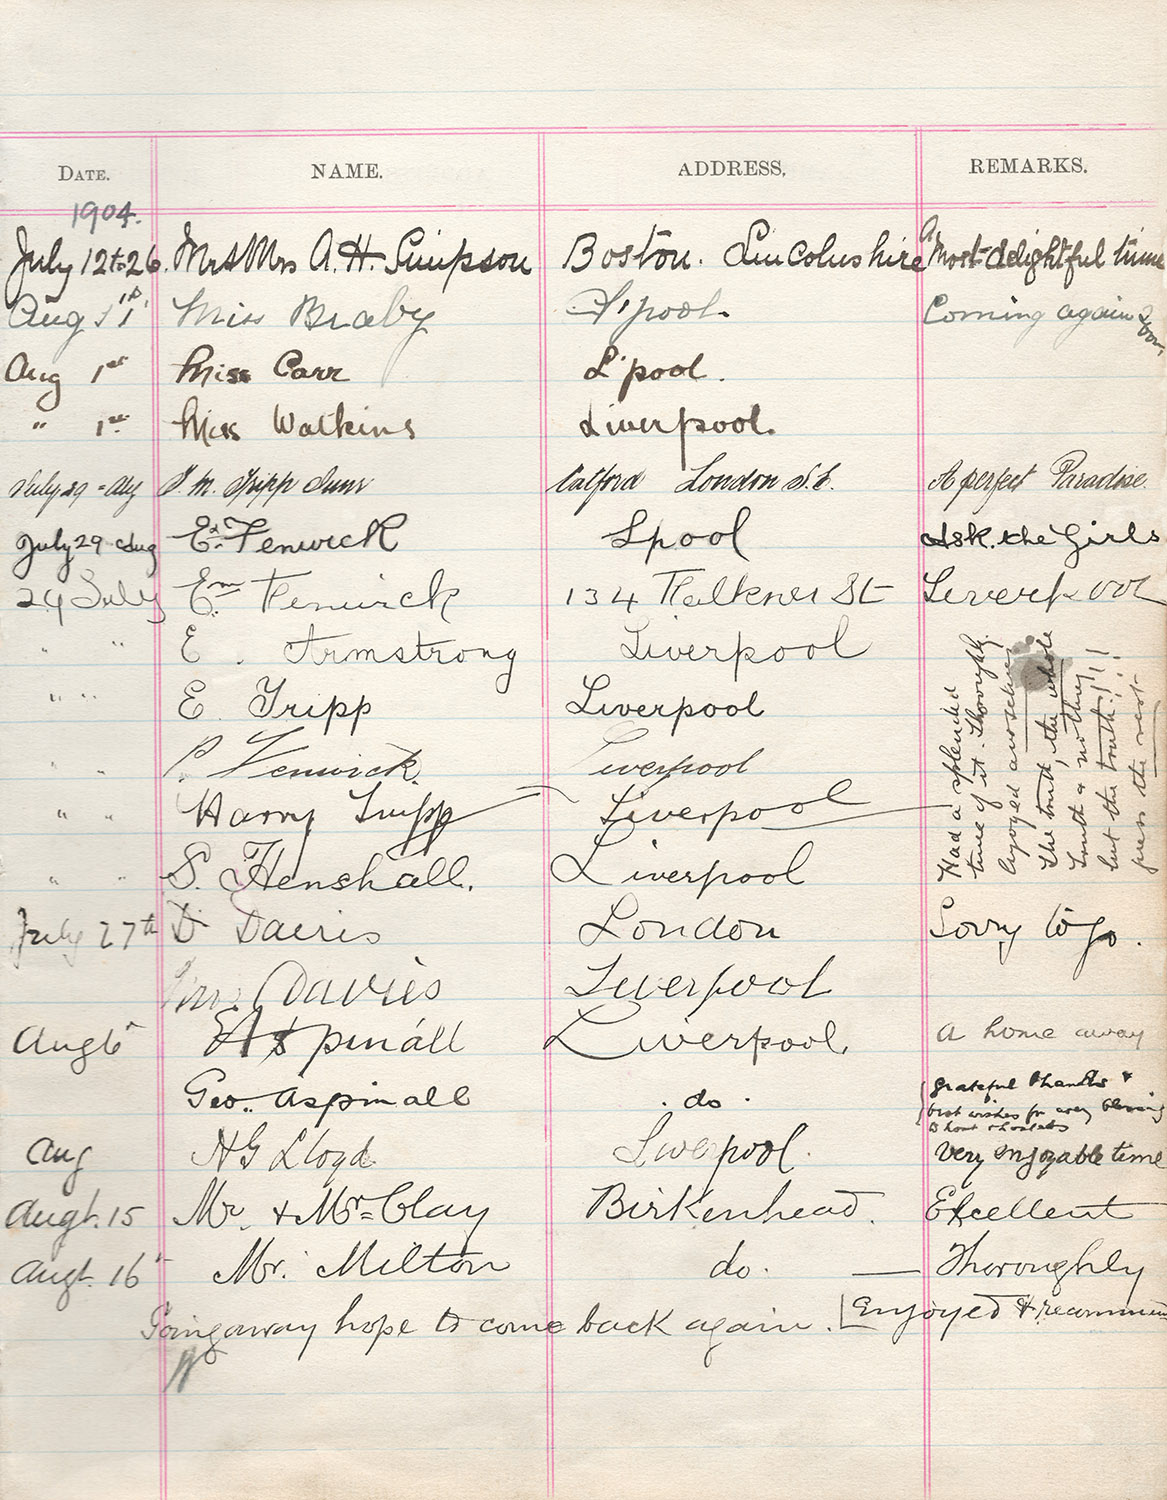 DATE. NAME. ADDRESS. REMARKS.
1904.
July 12 to 26. Mr & Mrs A. H. Simpson Boston. Lincolnshire A Most delightful time
Aug 1st Miss Braby L'pool. Coming again soon
Aug 1st Miss Carr L'pool.
" 1st Miss Watkins Liverpool.
July 29 - Aug T. M. Tripp Catford London S.E. A perfect Paradise.
July 29 - Aug Ed. Fenwick Lpool Ask. the Girls
24 July Em. Fenwick 134 Falkner St Liverpool
" " E. Armstrong Liverpool
" " E. Tripp Liverpool
" " P. Fenwick. Liverpool
" " Harry Tripp Liverpool
" " S. Henshall. Liverpool
Had a splended
time of it. Thoroughly
enjoyed ourselves
The truth, the whole
truth & nothing
but the truth!!!
pass the rest
July 27th D Davies London Sorry to go.
Davies Liverpool
Aug 6th H Aspinall Liverpool. A home away
Geo. Aspinall . do . grateful thanks &
best wishes for every blessing
Aug H G Lloyd Liverpool. Very enjoyable time
Augt. 15 Mr. & Mrs Clay Birkenhead. Excellent
Augt. 16 Mr. Milton do. — Thoroughly
Enjoyed & recommend
Going away hope to come back again.